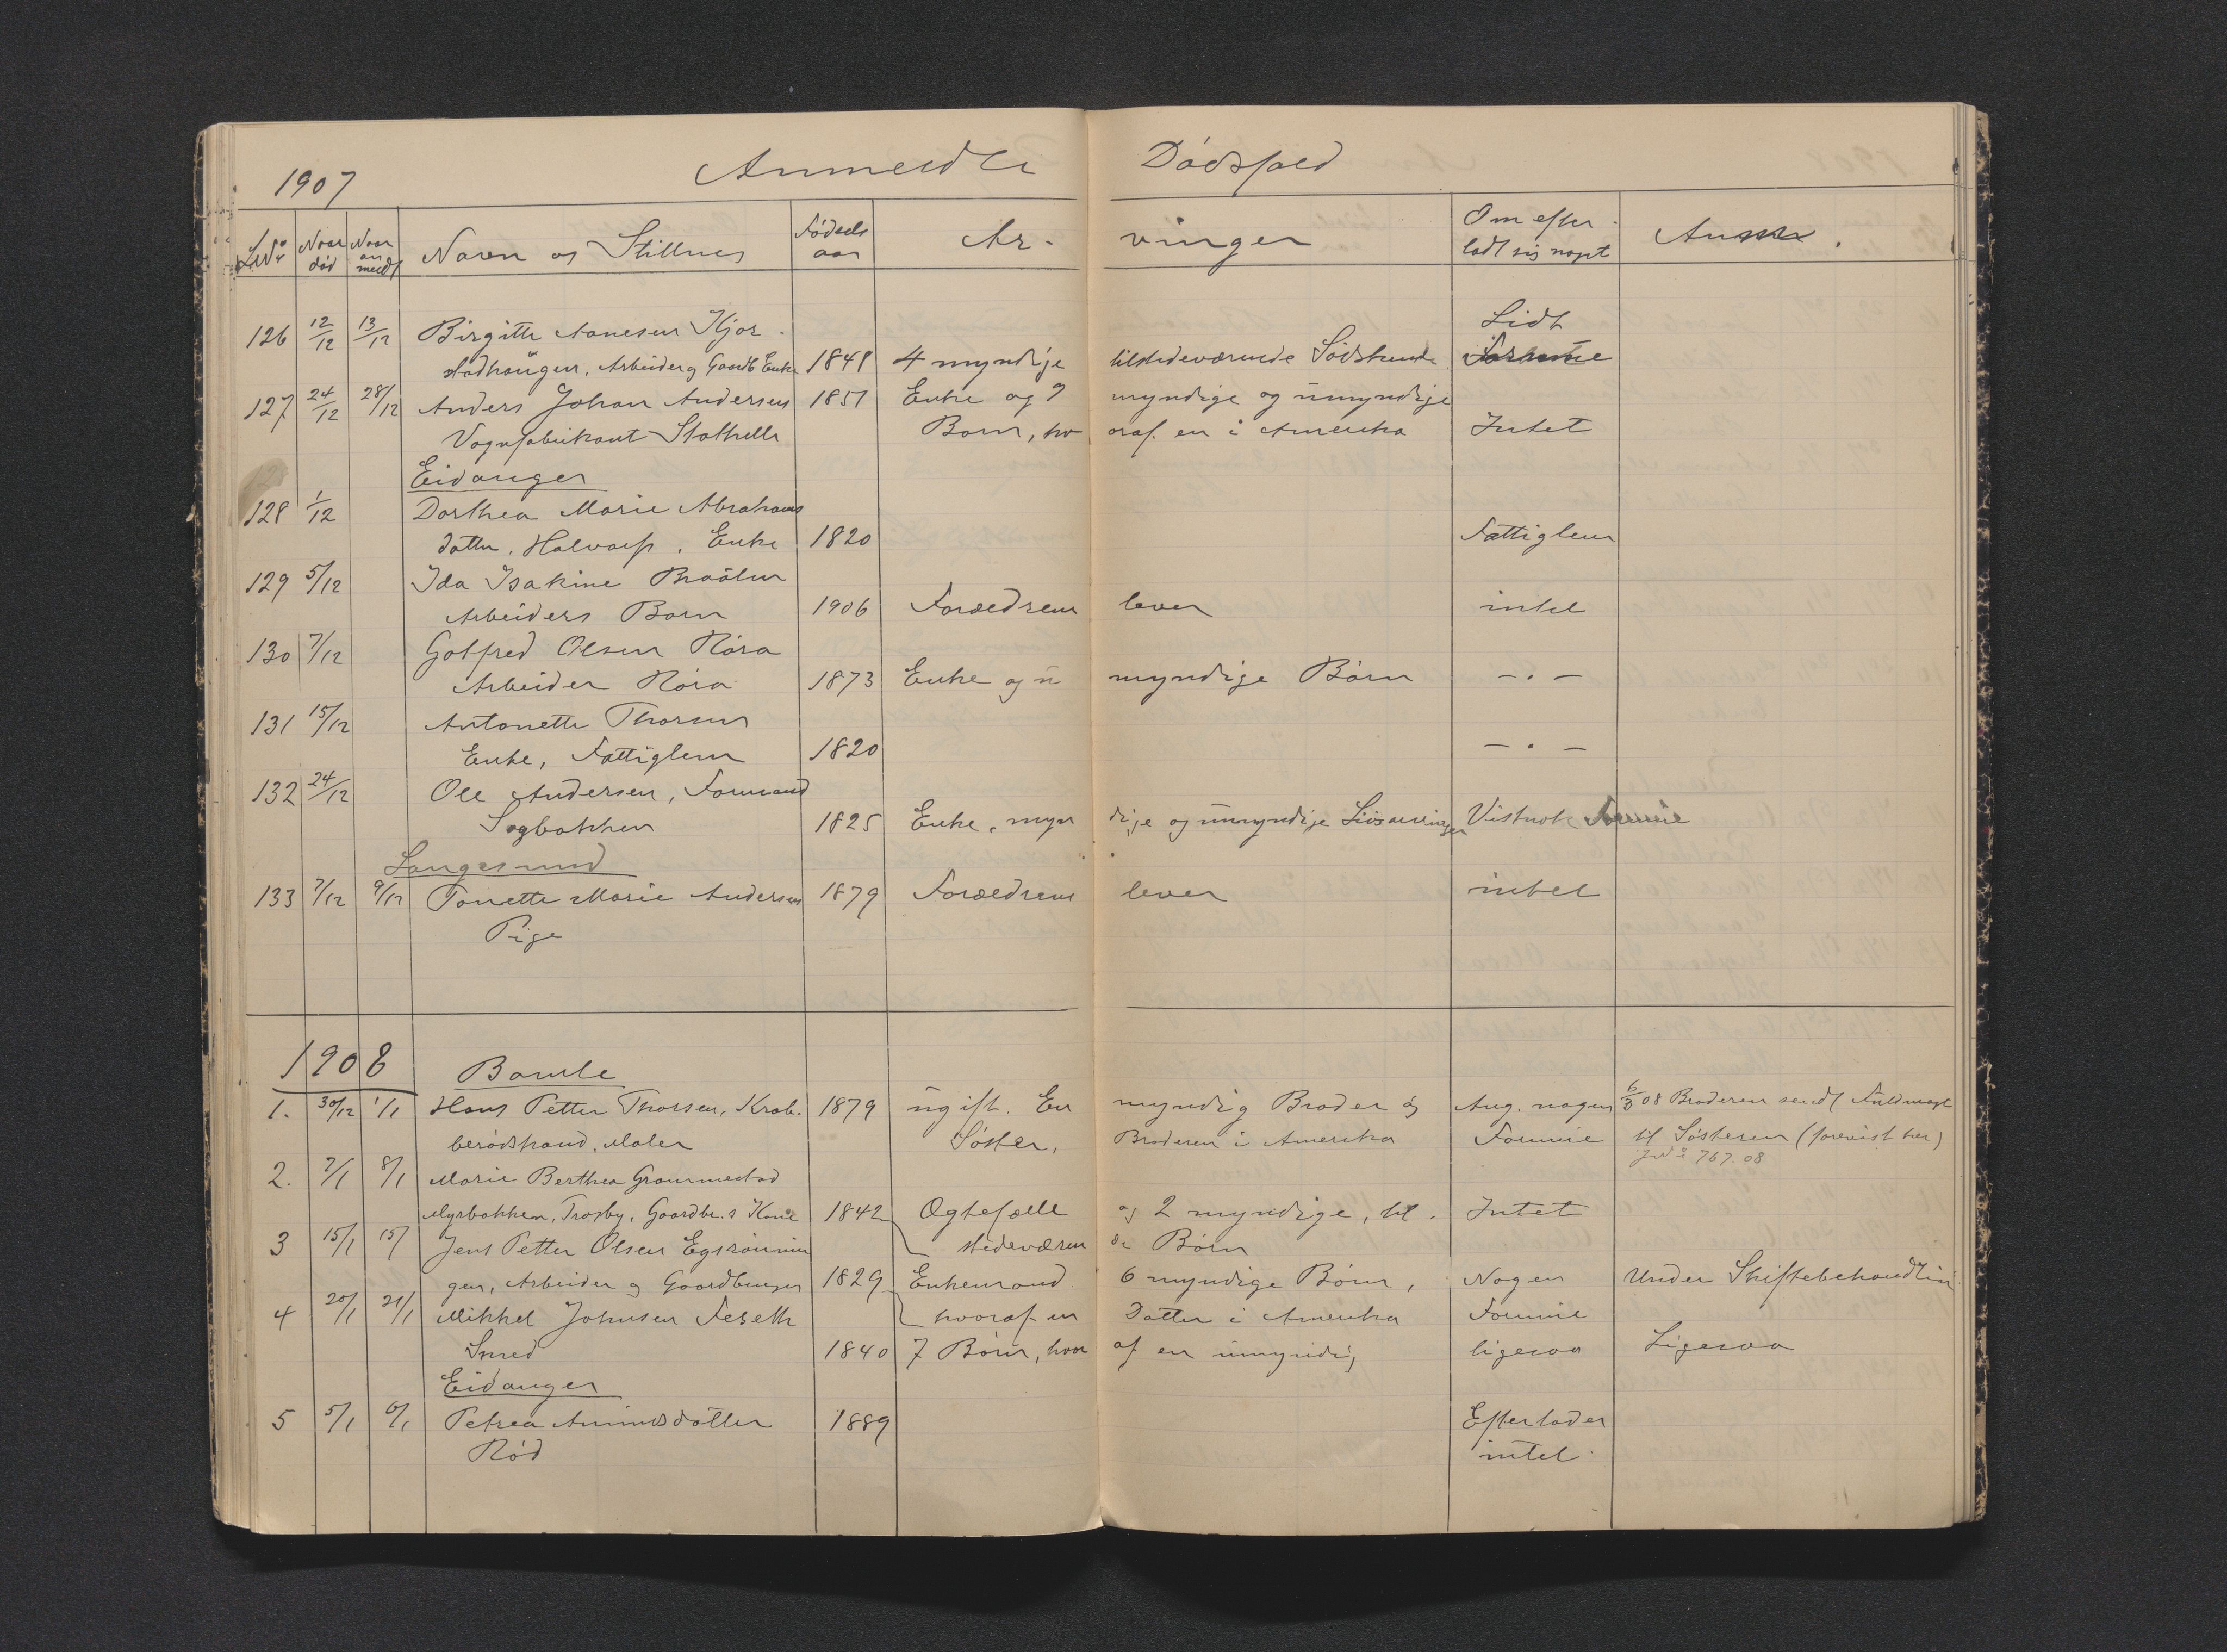 1907 Anmeldte Dødsfald
LNo Naar død Naar anmeldt Navn og Stilling Fødselsaar Ar- vinger Om efterladt sig noget Anm.
126 12/12 13/12 Birgitte Aanesen Kjør- Lidt
stadhaugen, Arbeider og Gaardb Enke 1848 4 myndige tilstedeværende Södskende Formúe
127 24/12 28/12 Anders Johan Andersen 1851 Enke og 7 myndige og úmyndige
Vognfabrikant Stathelle Børn, hv oraf en i Amerika Intet
Eidanger
128 1/12 Dorthea Marie Abrahams
datter. Halvarp. Enke 1820 Fattiglem
129 5/12 Ida Isakine Braaten
Arbeiders Barn 1906 Forældrene lever intet
130 7/12 Gotfred Olsen Röra
Arbeider Röra 1873 Enke og ú myndige Börn — . —
131 15/12 Antonette Thorsen
Enke, Fattiglem 1820 — . —
132 24/12 Ole Andersen, Formand
Sagbakken 1825 Enke, myn dige og úmyndige Livsarvinger Vistnok Formue
Langesund
133 7/12 9/12 Tonette Marie Andersen 1879 Forældrene lever intet
Pige
1908 Bamle
1. 30/12 1/1 Hans Petter Thorsen, Krab- 1879 úgift. En myndig Broder og Ang. nogen 6/3 08 Broderen sendt Fuldmagt
berødstrand, Maler Söster, Broderen i Amerika Formue til Søsteren (forevist her)
JNo 767.08
2. 7/1 8/1 Marie Berthea Grammestad
Myrbakken, Trosby, Gaardbr.s Kone 1842 Ægtefælle og 2 myndige, til- Intet
3 15/1 15/ Jens Petter Olsen Egsröninin stedeværen de Börn
gen, Arbeider og Gaardbruger 1829 Enkemand. 6 myndige Börn, Nogen Under Skiftebehandling
4 20/1 21/1 Mikkel Johnsen Feseth hvoraf en Datter i Amerika Formue
Smed 1840 7 Börn, hvor af en úmyndig ligesaa Ligesaa
Eidanger
5 5/1 6/1 Petrea Amundsdatter 1889 Efterlader
Röd intet